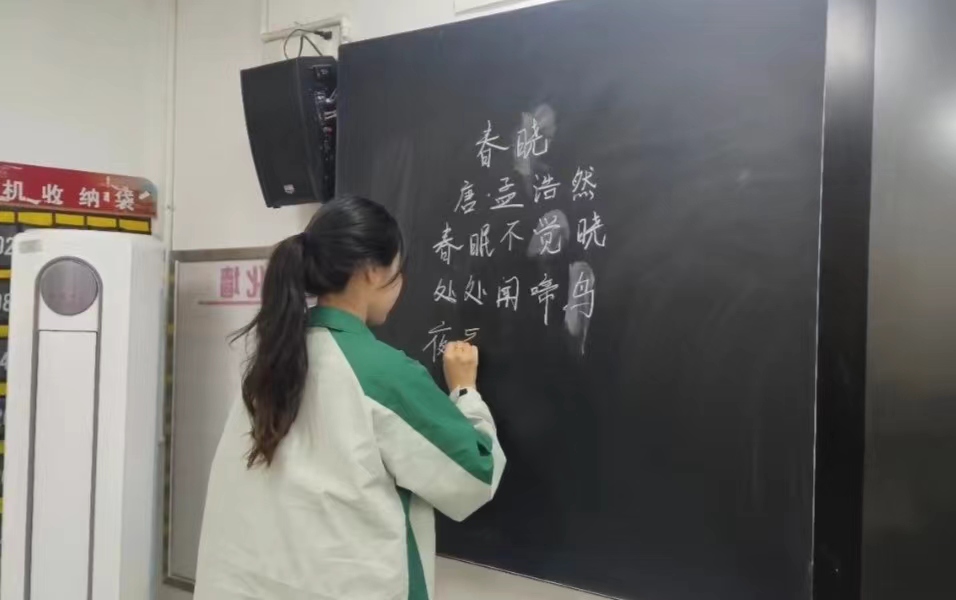 春晓
唐·孟浩然
春眠不觉晓
处处闻啼鸟
夜
机收纳袋
化墙
02